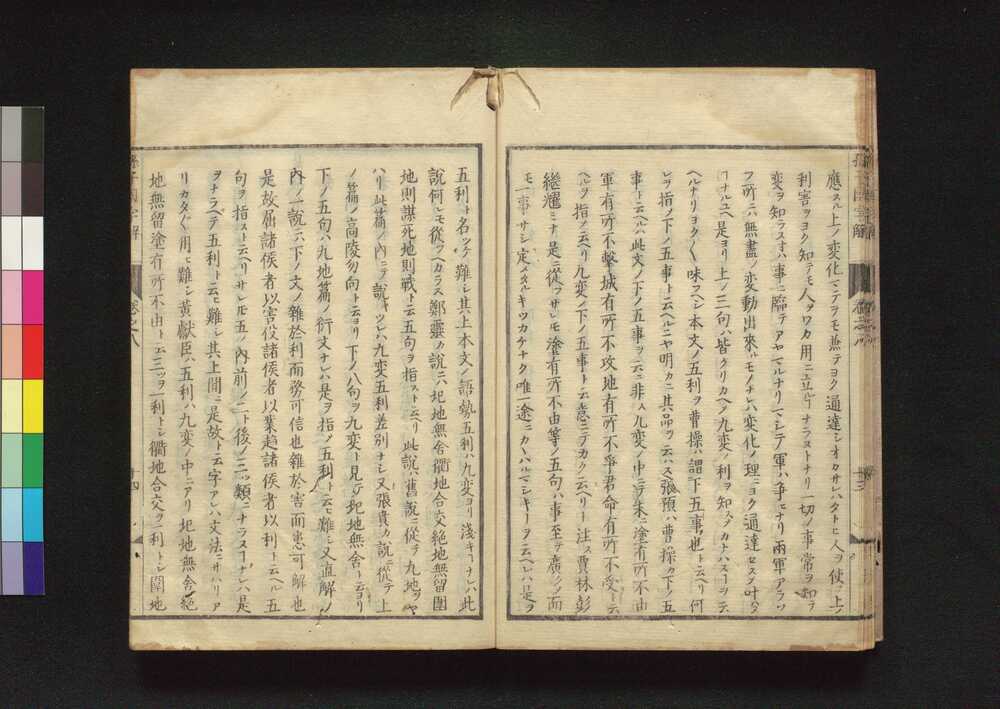 應スル上ノ変化マテヲモ兼テヨク通達シオカサレハタトヒ人ヲ使フ上ノ
利害ヲヨク知テモ人ヲワカ用ニ立ルヿナラストナリ一切ノ事常ヲ知テ
変ヲ知ラスハ事ニ臨テアヤマルナリマシテ軍ハ争ヒナリ両軍アラソ
フ所ニハ無盡ノ変動出來ルモノナレハ変化ノ理ニヨク通達セスンハ叶ハヌ
ヿナルユヘ是ヨリ上ノ三句ハ皆クリカヘシ九変ノ利ヲ知スンハカナハスヿヲ云
ヘルナリヨク〱味フヘシ本文ノ五利ヲ曹操ハ謂下五事也ト云ヘリ何
レヲ指ノ下ノ五事ト云ヘルニヤ明カニ其品ヲ云ハス張預ハ曹操カ下ノ五
事ト云ヘルハ此文ノ下ノ五事ヲ云ニ非ス九変ノ中ニテ朱ニ塗有所不由
軍有所不撃城有所不攻地有所不爭君命有所不受ト云
ヘルヲ指ノ云ヘリ九変ノ下ノ五事ト云意ニテカク云ヘリト注ス賈林彭
繼耀ミナ是ニ從フサレモ塗有所不由等ノ五句ハ事至テ廣クノ面
モ一事サシ定メタルキツカケナク唯一途ニカヽハルマシキヿヲ云ヘレハ是ヲ
五利ト名ツケ難シ其上本文ノ語勢五利ハ九変ヨリ淺キヿナレハ此
説何レモ從フヘカラス鄭靈カ說ニハ圮地無舍衢地合交絶地無留圍
地則謀死地則戦ト云五句ヲ指スト云ヘリ此說ハ舊説ニ從ヲ九地ヲヤ
ハリ此篇ノ內ニテ說キツレハ九変五利差別ナシ又張賁カ說ニ從テ上
ノ篇ノ高陵勿向ト云ヨリ下ノ八句ヲ九変ト見テ圮地無舍ト云ヨリ
下ノ五句ハ九地篇ノ衍文ナレハ是ヲ指ノ五利トハ云ヒ難シ又直解ノ
內ノ一說ニハ下ノ文ノ雜於利而務可信也雜於害而患可解也
是故屈諸侯者以害役諸侯者以業趨諸侯者以利ト云ヘル五
句ヲ指スト云ヘリサレモ五ノ內前ノ二ト後ノ三ツ類ニナラスヿナレハ是
ヲナラヘテ五利ト云ヒ難シ其上間ニ是故ト云字アレハ文法ニサハリア
リカタ〱用ヒ難シ黃獻臣ハ五利ハ九変ノ中ニアリ圮地無舍絶
地無留塗有所不由ト云三ツヲ一利トシ衢地合交ヲ一利トシ圍地